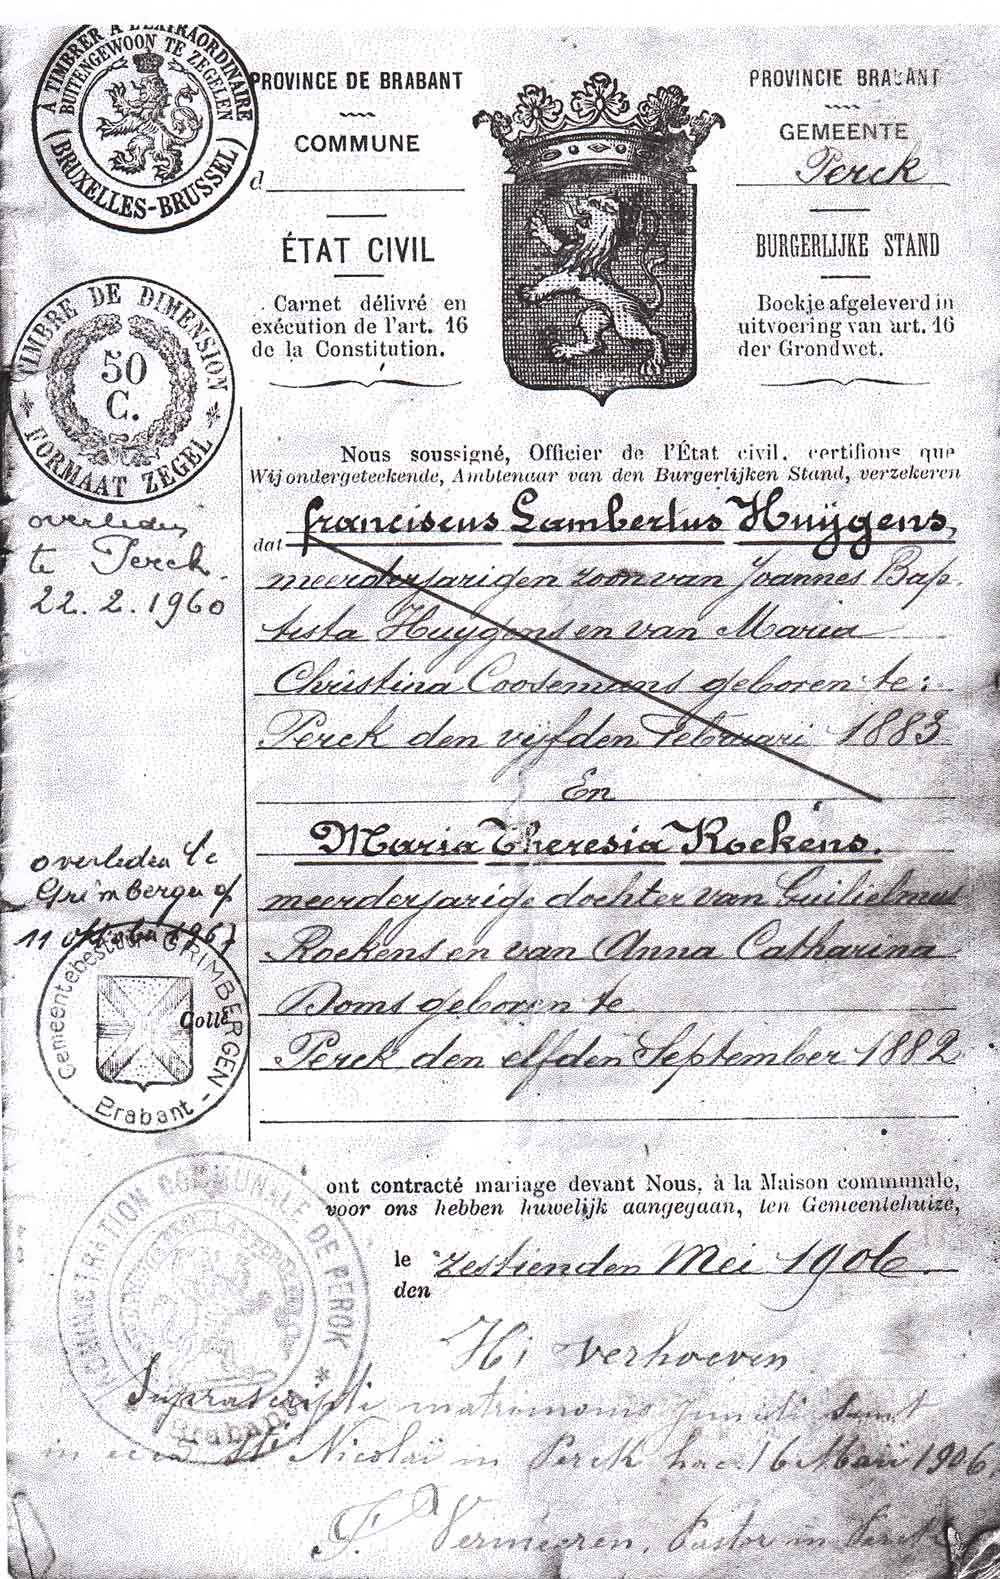 À TIMBRER À L'EXTRAORDINAIRE
BUITENGEWOON TE ZEGELEN
(BRUXELLES-BRUSSEL)
PROVINCE DE BRABANT
COMMUNE
d
ÉTAT CIVIL
Carnet délivré en
exécution de l'art. 16
de la Constitution.
PROVINCIE BRABANT
GEMEENTE
Perck
BURGERLIJKE STAND
Boekje afgeleverd in
uitvoering van art. 16
der Grondwet.
TIMBRE DE DIMENSION
50
C.
* FORMAAT ZEGEL *
Nous soussigné, Officier de l'État civil, certifions que
Wij ondergeteekende, Ambtenaar van den Burgerlijken Stand, verzekeren
dat Franciscus Lambertus Huÿgens,
meerderjarigen zoon van Joannes Bap
tista Huygens en van Maria
Christina Coosemans geboren te:
Perck den vijfden Februari 1883
En
Maria Theresia Roekens.
meerderjarige dochter van Guilielmus
Roekens en van Anna Catharina
Doms geboren te
Perck den elfden September 1882
overleden
te Perck.
22.2.1960
overleden te
Grimbergen op
11 oktober 1967
Gemeentebestuur GRIMBERGEN -
Colle
Brabant
ont contracté mariage devant Nous, à la Maison communale,
voor ons hebben huwelijk aangegaan, ten Gemeentehuize,
le
den
zestienden Mei 1906.
ADMINISTRATION COMMUNALE DE PERCK *
Brabant
Hi Verhoeven
Suprascripti matrimonio juncti sunt
in ecca Sti Nicolaï in Perck hac 16 Maii 1906
F. Vermeeren, Pastor in Perck